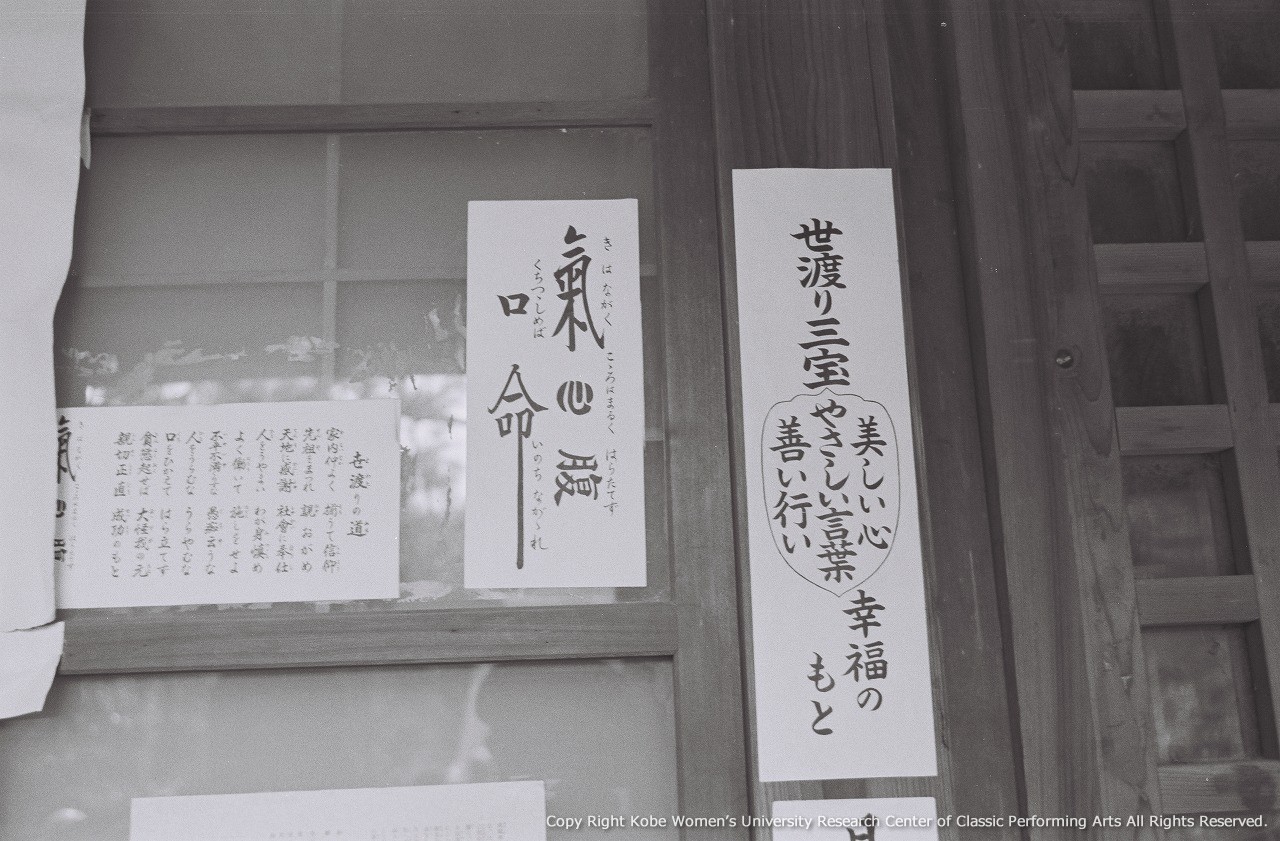 世渡り三宝
美しい心
やさしい言葉
善い行い
幸福の
もと
きはながく こゝろはまるく はらたてず
氣心腹
くちつゝしめば
口命
いのちながゝれ
世渡りの道
家内仲よく 揃うて信仰
先祖をまつれ 親おがめ
天地に感謝 社會に奉仕
人をうやまい わが身慎め
よく働いて 施しをせよ
不平不満する 愚痴云うな
人をうらむな うらやむな
口をひかえて はら立てず
貪慾起せば 大怪我の元
親切正直 成功のもと
氣心
Copy Right Kobe Women's University Research Center of Classic Performing Arts All Rights Reserved.